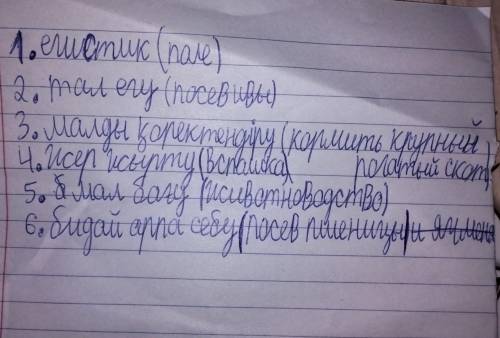 1. егистик (поле)
2. тал егу (посев ивы)
3. Малды қоректендіру (кормить крупный рогатый скот)
4. Жер жырту (вспашка)
5. мал бағу (животноводство)
6. бидай арпа себу (посев пшеницы и ячменя